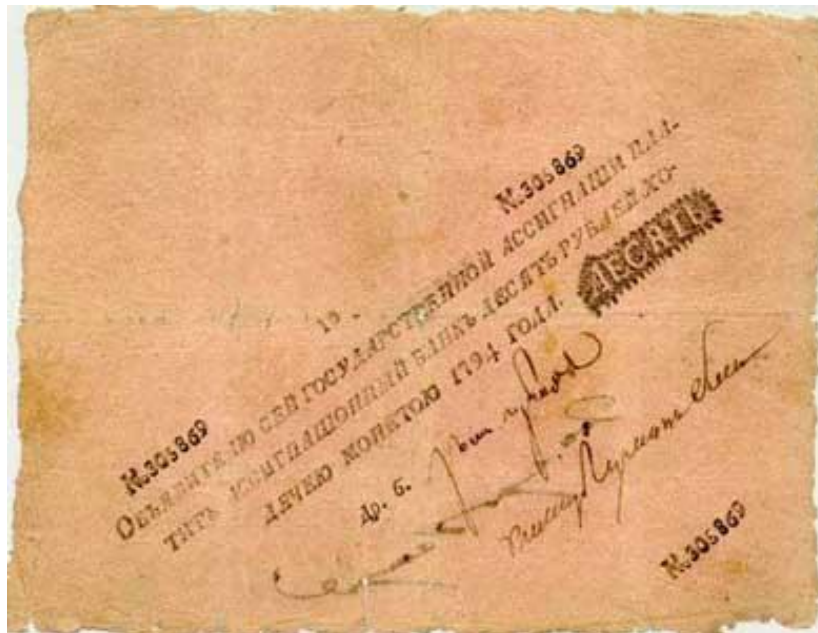 №.305869
10.
ОБЪЯВИТЕЛЮ СЕЙ ГОСУДАРСТВЕННОЙ АССИГНАЦІИ ПЛА-
ТИТЪ АССИГНАЦІОННЫЙ БАНКЪ ДЕСЯТЬ РУБЛЕЙ ХО-
ДЯЧЕЮ МОНЕТОЮ 1794 ГОДА.
ДЕСЯТЬ
№.305869
№.305869